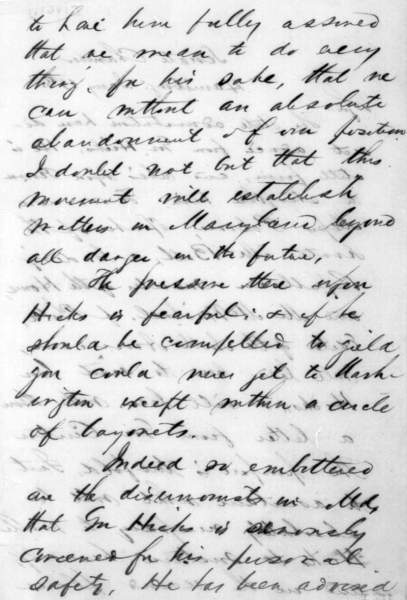 to have him fully assured
that we mean to do every
thing for his sake, that we
can without an absolute
abandonment of our position
I doubt not but that this
movement will establish
matters in Maryland beyond
all danger in the future.
The pressure there upon
Hicks is fearful; & if he
should be compelled to yield
you could never get to Wash-
ington except within a circle
of bayonets.
Indeed so embittered
are the disunionists in Md,
that Gov Hicks is seriously
concerned for his personal
safety. He has been advised